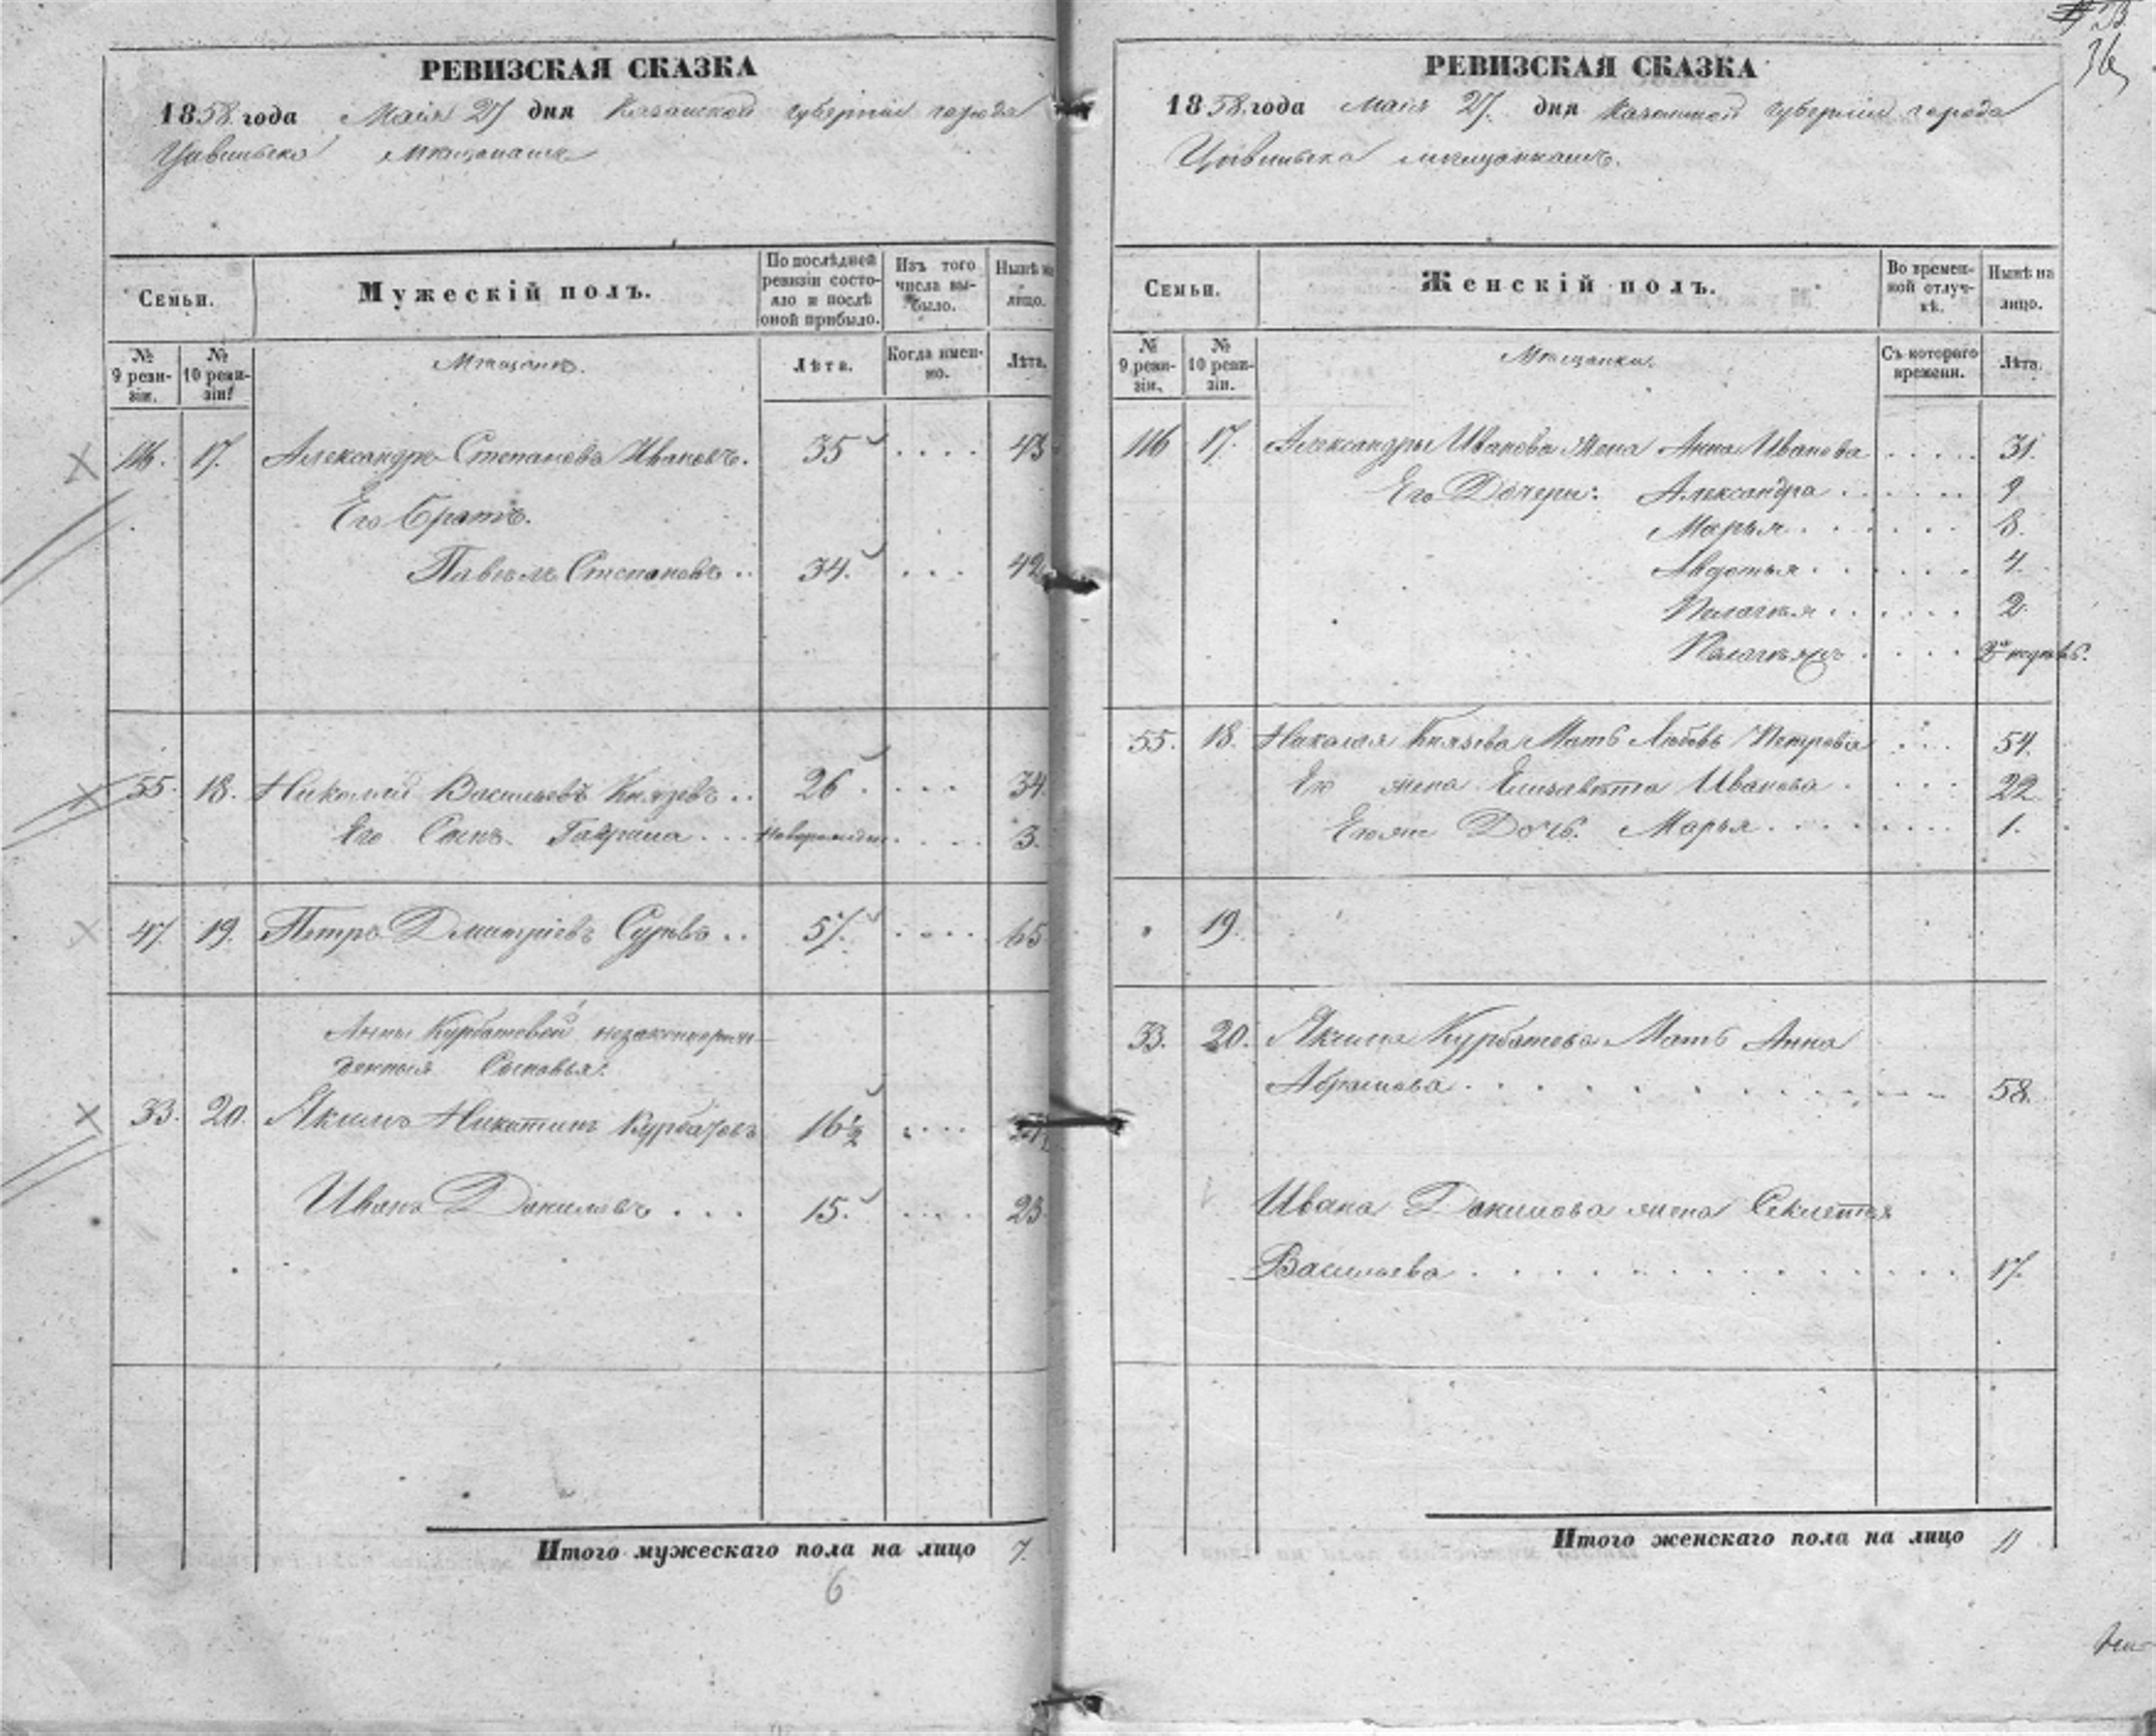 РЕВИЗСКАЯ СКАЗКА
1858 года Маія 27 дня Казанской губерніи города
Цивильска мѣщанамъ
Семьи.
Мужескій полъ.
По послѣдней ревизіи состояло и послѣ оной прибыло.
Изъ того числа выбыло.
Нынѣ на лицо.
№ 9 ревизіи.
№ 10 ревизіи.
Мѣщане.
Лѣта.
Когда именно.
Лѣта.
116. 17. Александръ Степановъ Ивановъ. 35 .... 43
Его братъ.
Павелъ Степановъ .. 34. ... 42
55. 18. Николай Васильевъ Князевъ .. 26 .... 34
Его Сынъ Гаврила ... новорожден .... 3.
47 19. Петръ Дмитріевъ Суревъ .. 57. .... 65
Анны Курбатовой незаконнорож-
денныя Сыновья:
33. 20. Якимъ Никитинъ Курбатовъ 16½ ....
Иванъ Даниловъ ... 15. .... 23
Итого мужескаго пола на лицо 7.
6
РЕВИЗСКАЯ СКАЗКА
1858 года Маія 27. дня Казанской губерніи города
Цивильска мѣщанкамъ.
Семьи.
Женскій полъ.
Во временной отлучкѣ.
Нынѣ на лицо.
№ 9 ревизіи.
№ 10 ревизіи.
Мѣщанки.
Съ котораго времени.
Лѣта.
116 17. Александры Иванова жена Анна Иванова ..... 31.
Его Дочери: Александра ...... 9
Марья ...... 8.
Авдотья ...... 4.
Пелагея ...... 2.
55. 18. Николая Князева Мать Любовь Петрова .... 54.
Ек жена Елизавѣта Иванова .... 22
Дочь. Марья ....... 1.
19.
33. 20. Якима Курбатова Мать Анна
Абрамова .......... 58.
Ивана Данилова жена Секлетья
Васильева .......... 17.
Итого женскаго пола на лицо 11
36